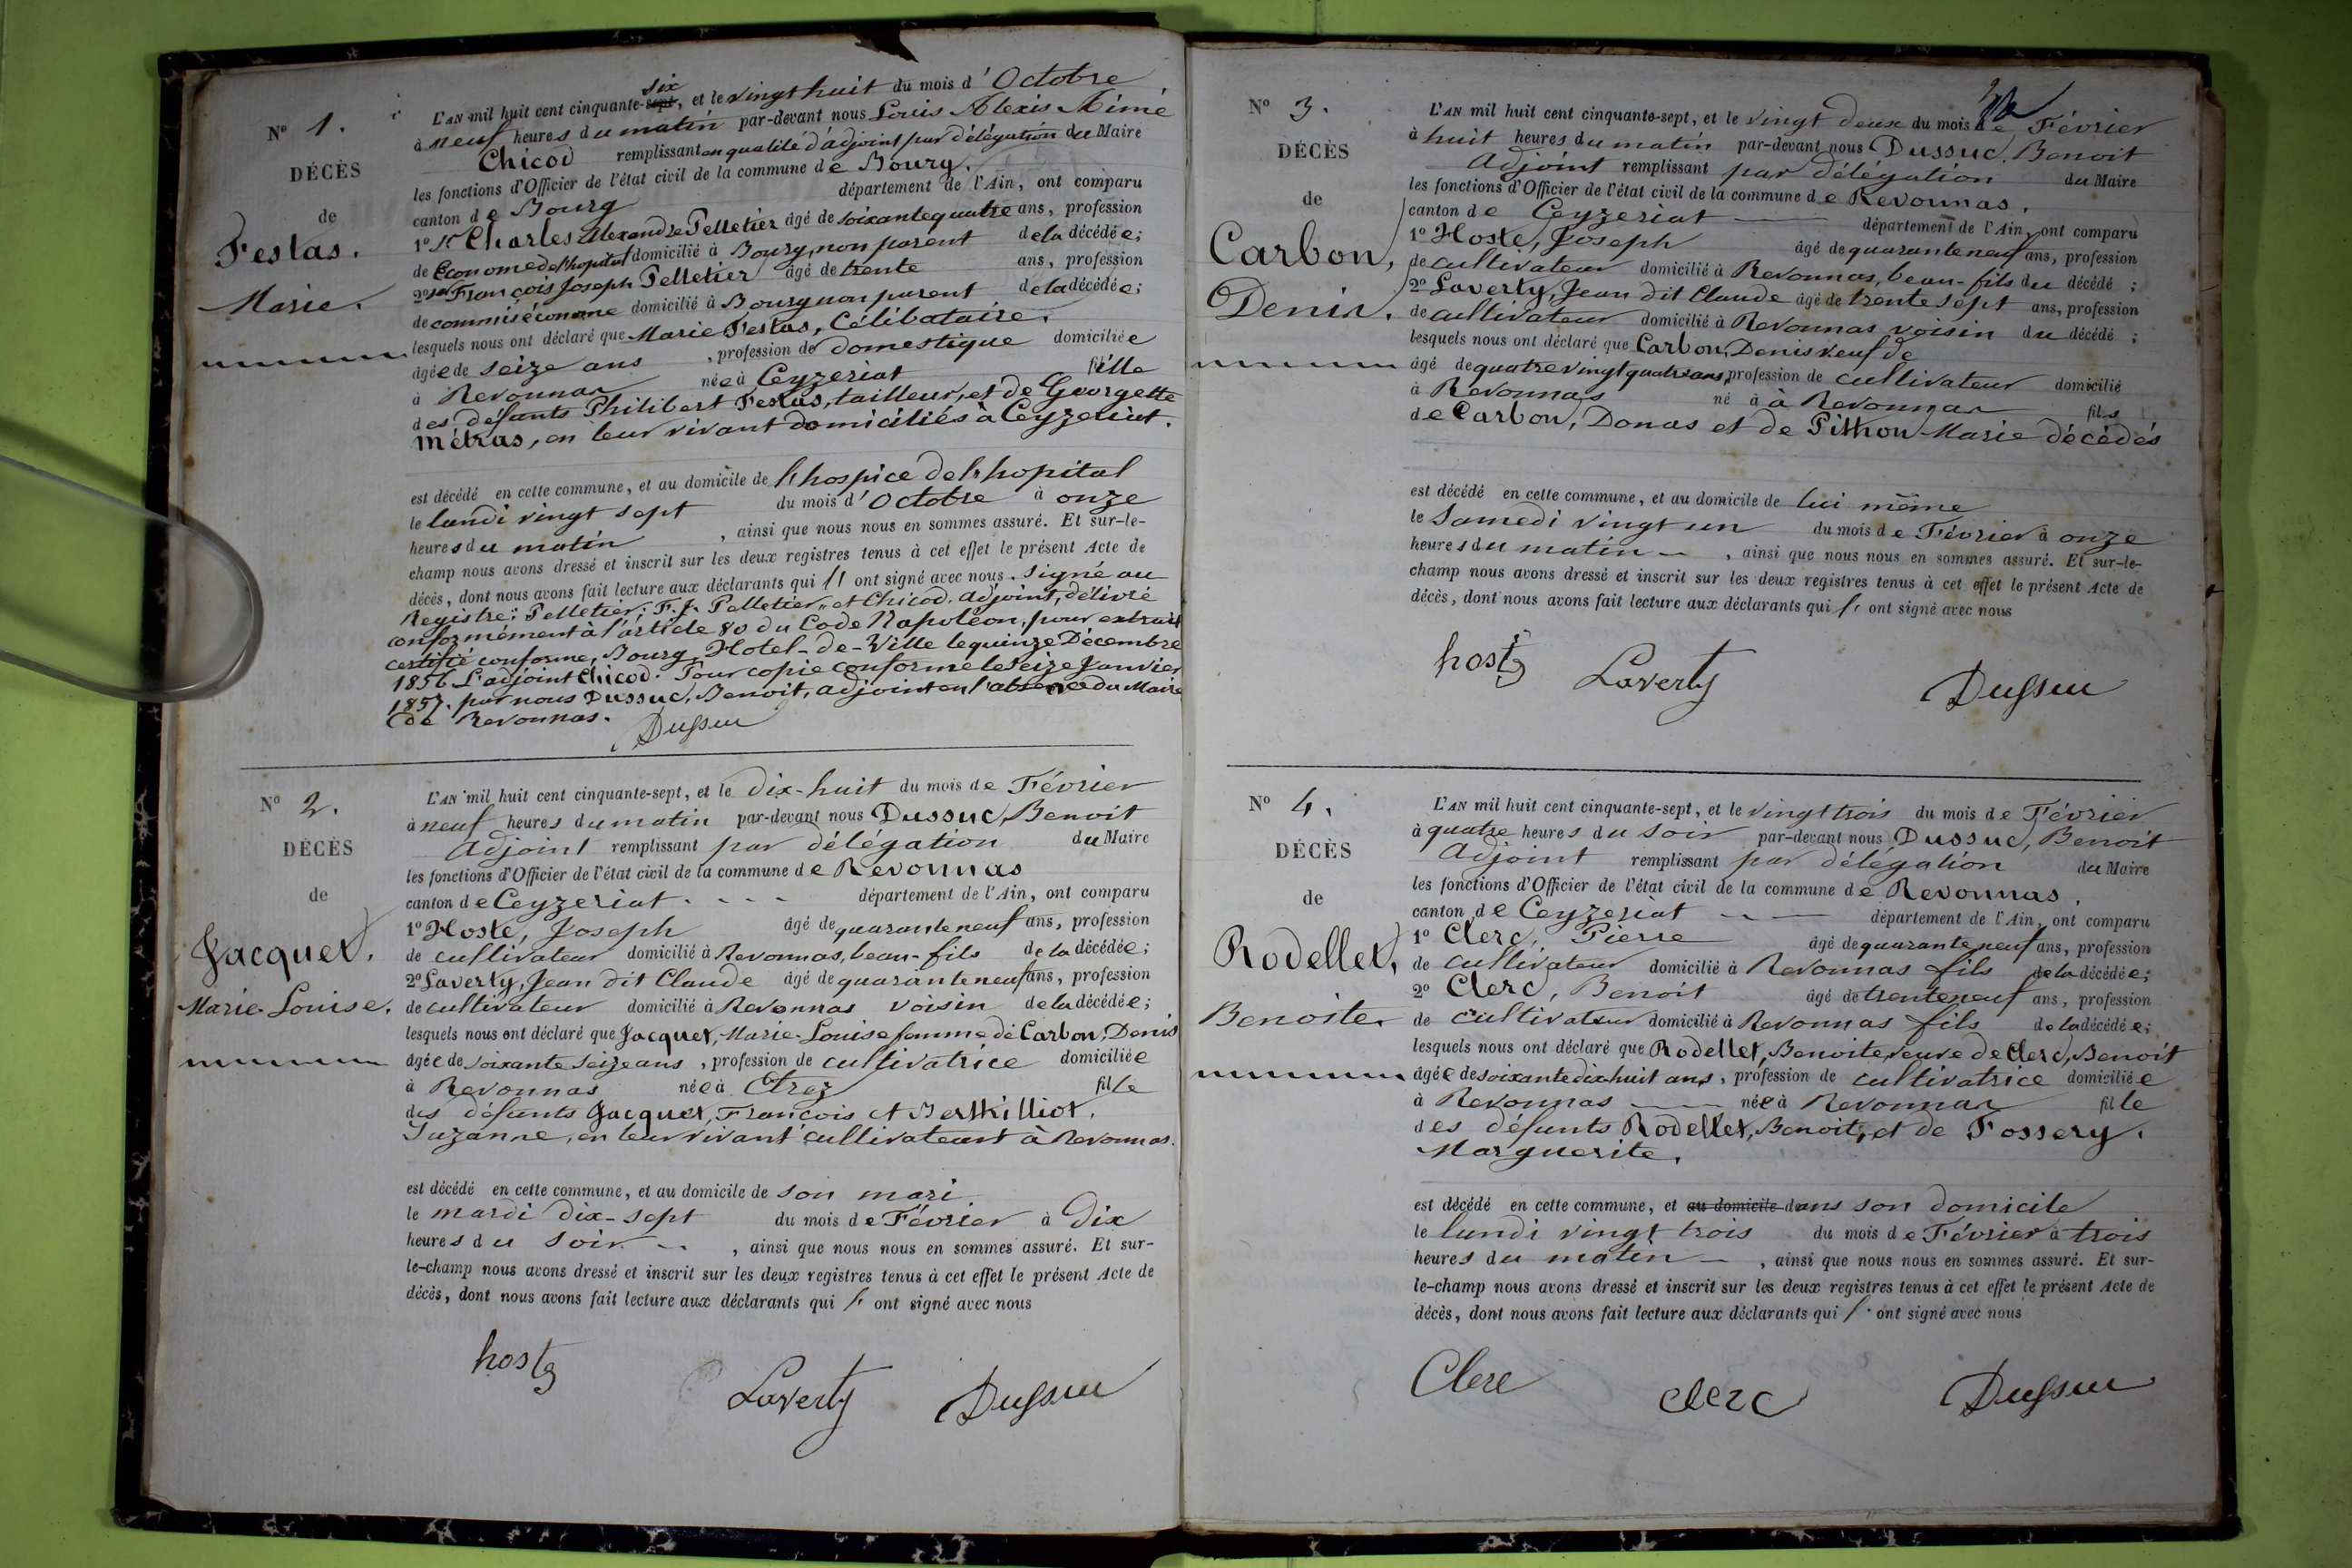 N° 1.
DÉCÈS
de
Festas.
Marie.
six
L'AN mil huit cent cinquante-sept, et le vingt huit du mois d'Octobre
à neuf heures du matin par-devant nous Louis Alexis Aimé
Chicod remplissant en qualité d'adjoint par délégation du Maire
les fonctions d'Officier de l'état civil de la commune de Bourg.
canton de Bourg département de l'Ain, ont comparu
1° Sr Charles Alexandre Pelletier âgé de soixante quatre ans, profession
de Econome de l'hopital domicilié à Bourg, non parent de la décédée;
2° Sr François Joseph Pelletier âgé de trente ans, profession
de commis économe domicilié à Bourg non parent de la décédée;
lesquels nous ont déclaré que Marie Festas, Célibataire.
âgée de seize ans, profession de domestique domiciliée
à Revonnas née à Ceyzeriat fille
des défunts Philibert Festas, tailleur, et de Georgette
Métras, en leur vivant domiciliés à Ceyzeriat.
est décédé en cette commune, et au domicile de l'hospice de l'hopital
le lundi vingt sept du mois d'Octobre à onze
heures du matin, ainsi que nous nous en sommes assuré. Et sur-le-
champ nous avons dressé et inscrit sur les deux registres tenus à cet effet le présent Acte de
décès, dont nous avons fait lecture aux déclarants qui ont signé avec nous. Signé au
Registre: Pelletier; F. J. Pelletier, et Chicod. adjoint, délivré
conformément à l'article 80 du Code Napoléon, pour extrait
certifié conforme, Bourg, Hotel-de-Ville le quinze Décembre
1856 L'adjoint Chicod. Pour copie conforme le seize Janvier
1857. par nous Dussuc, Benoit, adjoint en l'absence du Maire
de Revonnas.
Dussuc
N° 2.
DÉCÈS
de
Jacquet.
Marie-Louise.
L'AN mil huit cent cinquante-sept, et le dix-huit du mois de Février
à neuf heures du matin par-devant nous Dussuc, Benoit
Adjoint remplissant par délégation du Maire
les fonctions d'Officier de l'état civil de la commune de Revonnas
canton de Ceyzeriat. - - - département de l'Ain, ont comparu
1° Hoste, Joseph âgé de quarante neuf ans, profession
de cultivateur domicilié à Revonnas, beau-fils de la décédée;
2° Laverty, Jean dit Claude âgé de quarante neuf ans, profession
de cultivateur domicilié à Revonnas voisin de la décédée;
lesquels nous ont déclaré que Jacquet, Marie-Louise femme de Carbon, Denis
âgée de soixante seize ans, profession de cultivatrice domiciliée
à Revonnas née à Etrez fille
des défunts Jacquet, François et Berthilliot,
Suzanne, en leur vivant cultivateurs à Revonnas.
est décédé en cette commune, et au domicile de son mari
le mardi dix-sept du mois de Février à Dix
heures du soir - -, ainsi que nous nous en sommes assuré. Et sur-
le-champ nous avons dressé et inscrit sur les deux registres tenus à cet effet le présent Acte de
décès, dont nous avons fait lecture aux déclarants qui ont signé avec nous
hoste
Laverty
Dussuc
N° 3.
DÉCÈS
de
Carbon,
Denis.
L'AN mil huit cent cinquante-sept, et le vingt deux du mois de Février
à huit heures du matin par-devant nous Dussuc, Benoit
Adjoint remplissant par délégation du Maire
les fonctions d'Officier de l'état civil de la commune de Revonnas.
canton de Ceyzeriat — département de l'Ain, ont comparu
1° Hoste, Joseph âgé de quarante neuf ans, profession
de cultivateur domicilié à Revonnas, beau-fils du décédé;
2° Laverty, Jean dit Claude âgé de trente sept ans, profession
de cultivateur domicilié à Revonnas voisin du décédé;
lesquels nous ont déclaré que Carbon, Denis veuf de
âgé de quatre vingt quatre ans, profession de cultivateur domicilié
à Revonnas né à à Revonnas fils
de Carbon, Donas et de Pithon Marie décédés
est décédé en cette commune, et au domicile de lui même
le Samedi vingt un du mois de Février à onze
heures du matin - -, ainsi que nous nous en sommes assuré. Et sur-le-
champ nous avons dressé et inscrit sur les deux registres tenus à cet effet le présent Acte de
décès, dont nous avons fait lecture aux déclarants qui ont signé avec nous
hoste
Laverty
Dussuc
N° 4.
DÉCÈS
de
Rodellet,
Benoite.
L'AN mil huit cent cinquante-sept, et le vingt trois du mois de Février
à quatre heures du soir par-devant nous Dussuc, Benoit
Adjoint remplissant par délégation du Maire
les fonctions d'Officier de l'état civil de la commune de Revonnas.
canton de Ceyzeriat - — département de l'Ain, ont comparu
1° Clerc, Pierre âgé de quarante neuf ans, profession
de cultivateur domicilié à Revonnas fils de la décédée;
2° Clerc, Benoit âgé de trente neuf ans, profession
de cultivateur domicilié à Revonnas fils de la décédée;
lesquels nous ont déclaré que Rodellet, Benoite, veuve de Clerc, Benoit
âgée de soixante dix huit ans, profession de cultivatrice domiciliée
à Revonnas — née à Revonnas fille
des défunts Rodellet, Benoit, et de Fossery.
Marguerite.
est décédé en cette commune, et au domicile dans son domicile
le lundi vingt trois du mois de Février à trois
heures du matin —, ainsi que nous nous en sommes assuré. Et sur-
le-champ nous avons dressé et inscrit sur les deux registres tenus à cet effet le présent Acte de
décès, dont nous avons fait lecture aux déclarants qui ont signé avec nous
Clerc
clerc
Dussuc